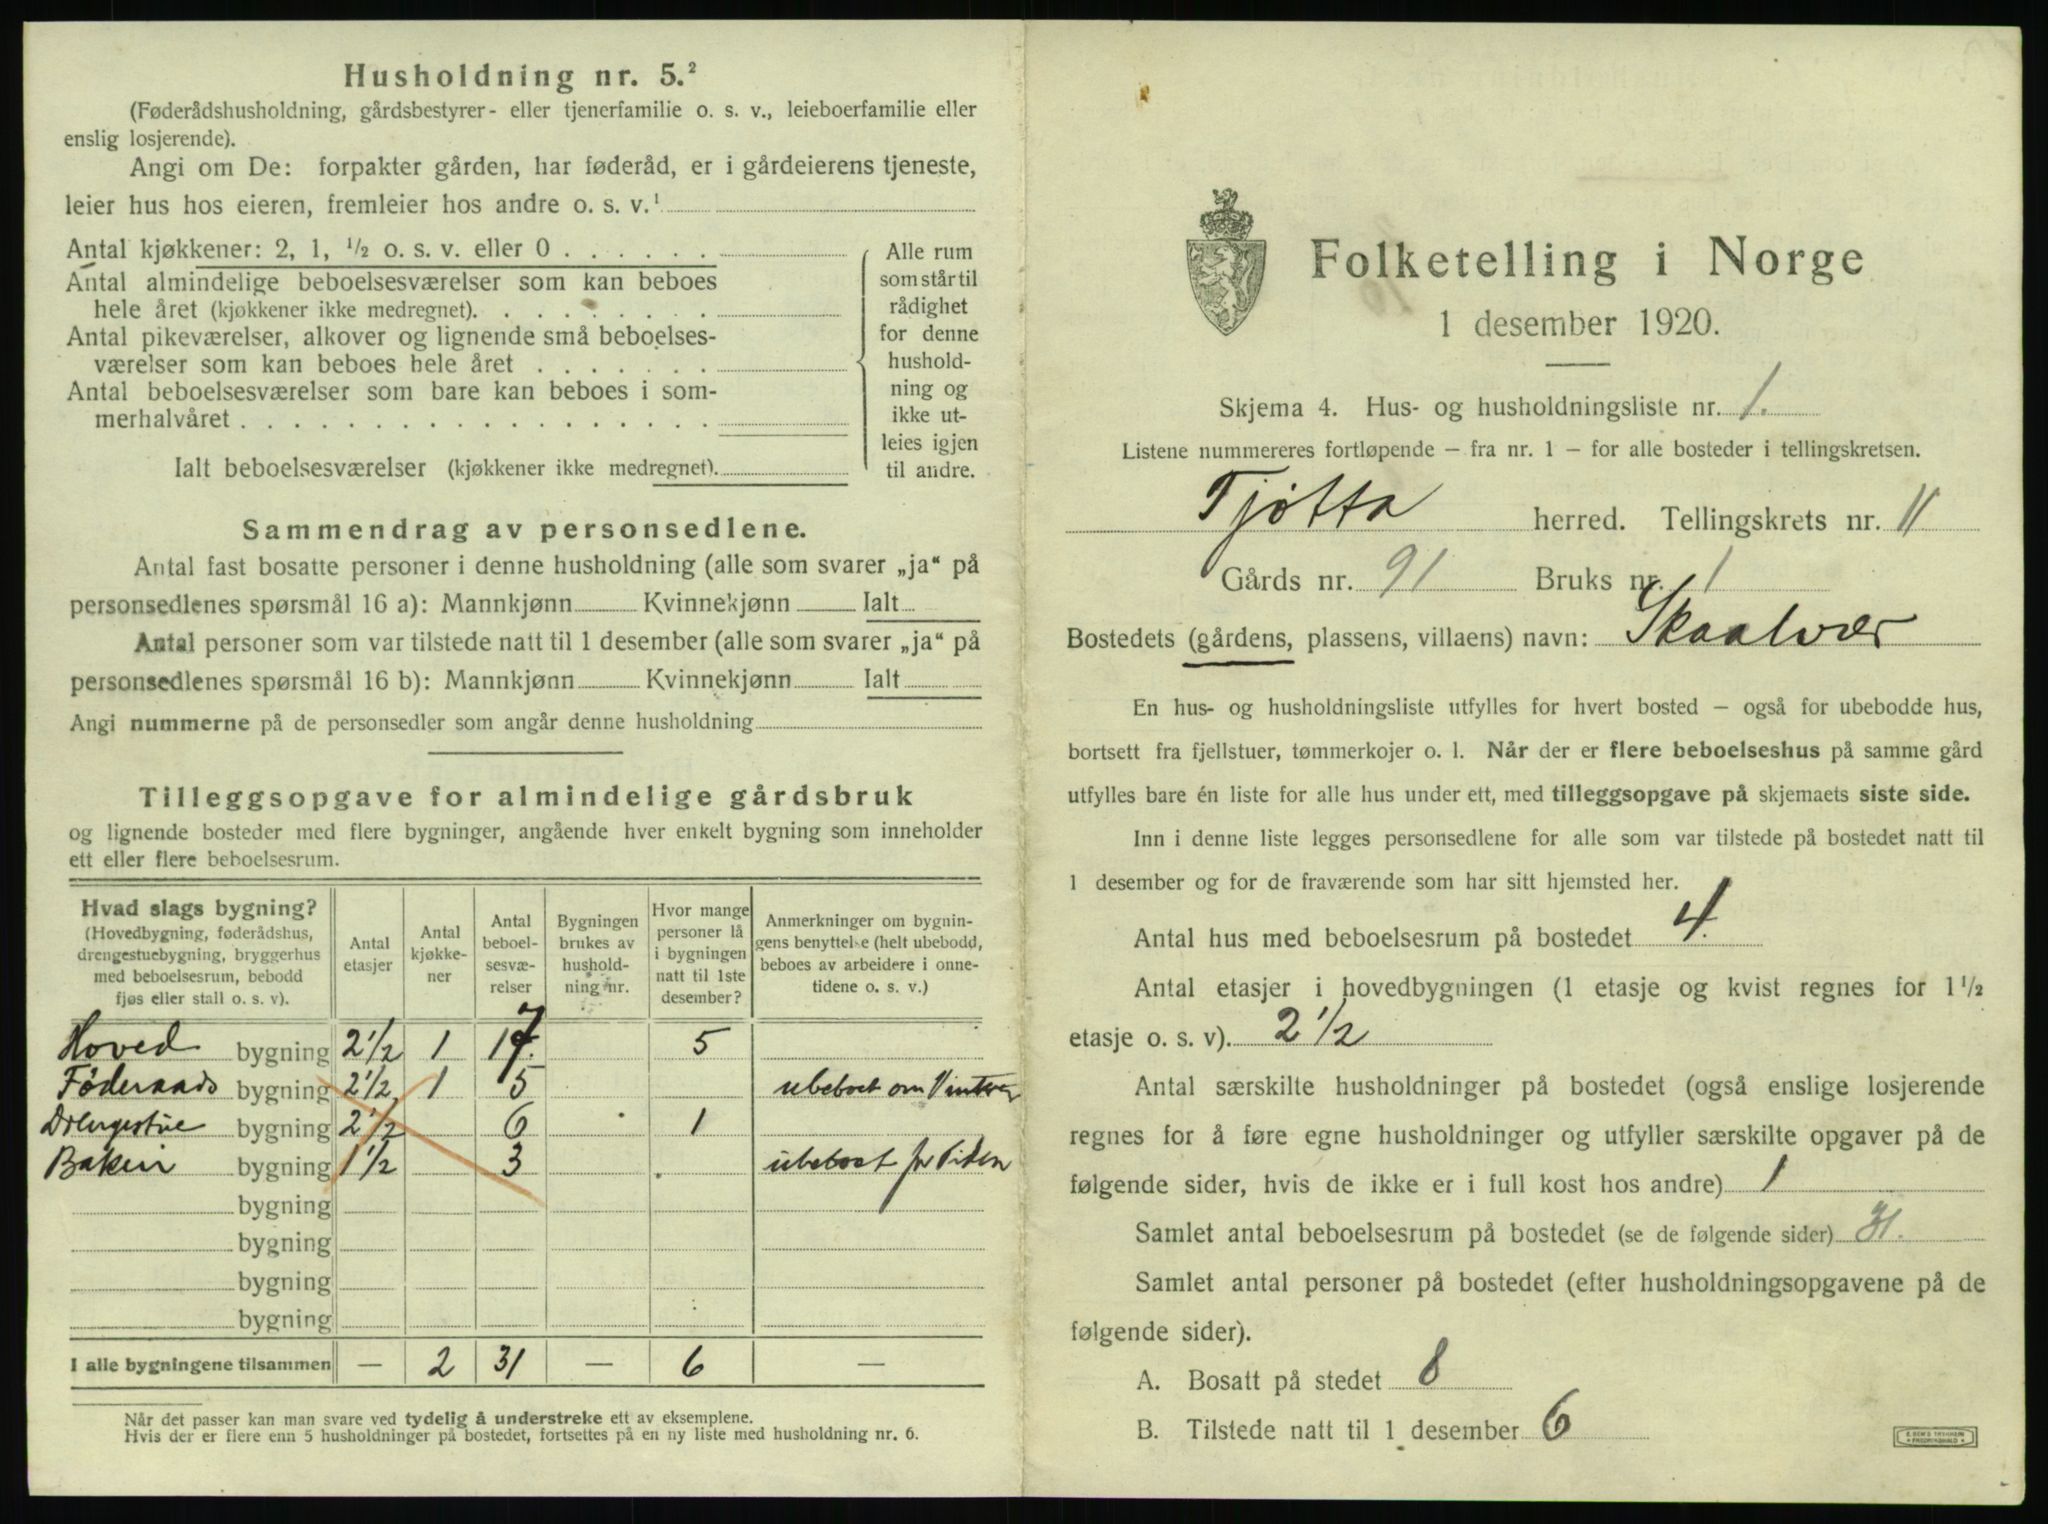 Husholdning nr. 5.²
(Føderådshusholdning, gårdsbestyrer- eller tjenerfamilie o. s. v., leieboerfamilie eller
enslig losjerende).
Angi om De: forpakter gården, har føderåd, er i gårdeierens tjeneste,
leier hus hos eieren, fremleier hos andre o. s. v.¹
Antal kjøkkener: 2, 1, ½ o. s. v. eller 0 . . . . . .
Antal almindelige beboelsesværelser som kan beboes
hele året (kjøkkener ikke medregnet). . . . . . . . .
Antal pikeværelser, alkover og lignende små beboelses-
værelser som kan beboes hele året . . . . . . .
Antal beboelsesværelser som bare kan beboes i som-
merhalvåret . . . . . . . . . . . . . . . . . .
Ialt beboelsesværelser (kjøkkener ikke medregnet).
Alle rum
som står til
rådighet
for denne
hushold-
ning og
ikke ut-
leies igjen
til andre.
Sammendrag av personsedlene.
Antal fast bosatte personer i denne husholdning (alle som svarer „ja“ på
personsedlenes spørsmål 16 a): Mannkjønn Kvinnekjønn Ialt
Antal personer som var tilstede natt til 1 desember (alle som svarer „ja“ på
personsedlenes spørsmål 16 b): Mannkjønn Kvinnekjønn Ialt
Angi nummerne på de personsedler som angår denne husholdning
Tilleggsopgave for almindelige gårdsbruk
og lignende bosteder med flere bygninger, angående hver enkelt bygning som inneholder
ett eller flere beboelsesrum.
Hvad slags bygning?
(Hovedbygning, føderådshus,
drengestuebygning, bryggerhus
med beboelsesrum, bebodd
fjøs eller stall o. s. v).
Antal
etasjer
Antal
kjøkke-
ner
Antal
beboel-
sesvæ-
relser
Bygningen
brukes av
hushold-
ning nr.
Hvor mange
personer lå
i bygningen
natt til 1ste
desember?
Anmerkninger om bygnin-
gens benyttelse (helt ubebodd,
beboes av arbeidere i onne-
tidene o. s. v.)
Hoved bygning 2½ 1 17. 5
Føderaads bygning 2½ 1 5 ubeboet om Vinteren
Drengestue bygning 2½ 6 1
Bakeri bygning 1½ 3 ubeboet for Tiden
bygning
bygning
bygning
bygning
I alle bygningene tilsammen — 2 31 — 6 —
Når det passer kan man svare ved tydelig å understreke ett av eksemplene.
Hvis der er flere enn 5 husholdninger på bostedet, fortsettes på en ny liste med husholdning nr. 6.
Folketelling i Norge
1 desember 1920.
Skjema 4. Hus- og husholdningsliste nr. 1.
Listene nummereres fortløpende – fra nr. 1 – for alle bosteder i tellingskretsen.
Tjøtta herred. Tellingskrets nr. 11
Gårds nr. 91 Bruks nr. 1
Bostedets (gårdens, plassens, villaens) navn: Skaalvær
En hus- og husholdningsliste utfylles for hvert bosted – også for ubebodde hus,
bortsett fra fjellstuer, tømmerkojer o. l. Når der er flere beboelseshus på samme gård
utfylles bare én liste for alle hus under ett, med tilleggsopgave på skjemaets siste side.
Inn i denne liste legges personsedlene for alle som var tilstede på bostedet natt til
1 desember og for de fraværende som har sitt hjemsted her.
Antal hus med beboelsesrum på bostedet 4.
Antal etasjer i hovedbygningen (1 etasje og kvist regnes for 1½
etasje o. s. v). 2½
Antal særskilte husholdninger på bostedet (også enslige losjerende
regnes for å føre egne husholdninger og utfyller særskilte opgaver på de
følgende sider, hvis de ikke er i full kost hos andre) 1
Samlet antal beboelsesrum på bostedet (se de følgende sider) 31.
Samlet antal personer på bostedet (efter husholdningsopgavene på de
følgende sider).
A. Bosatt på stedet 8
B. Tilstede natt til 1 desember 6